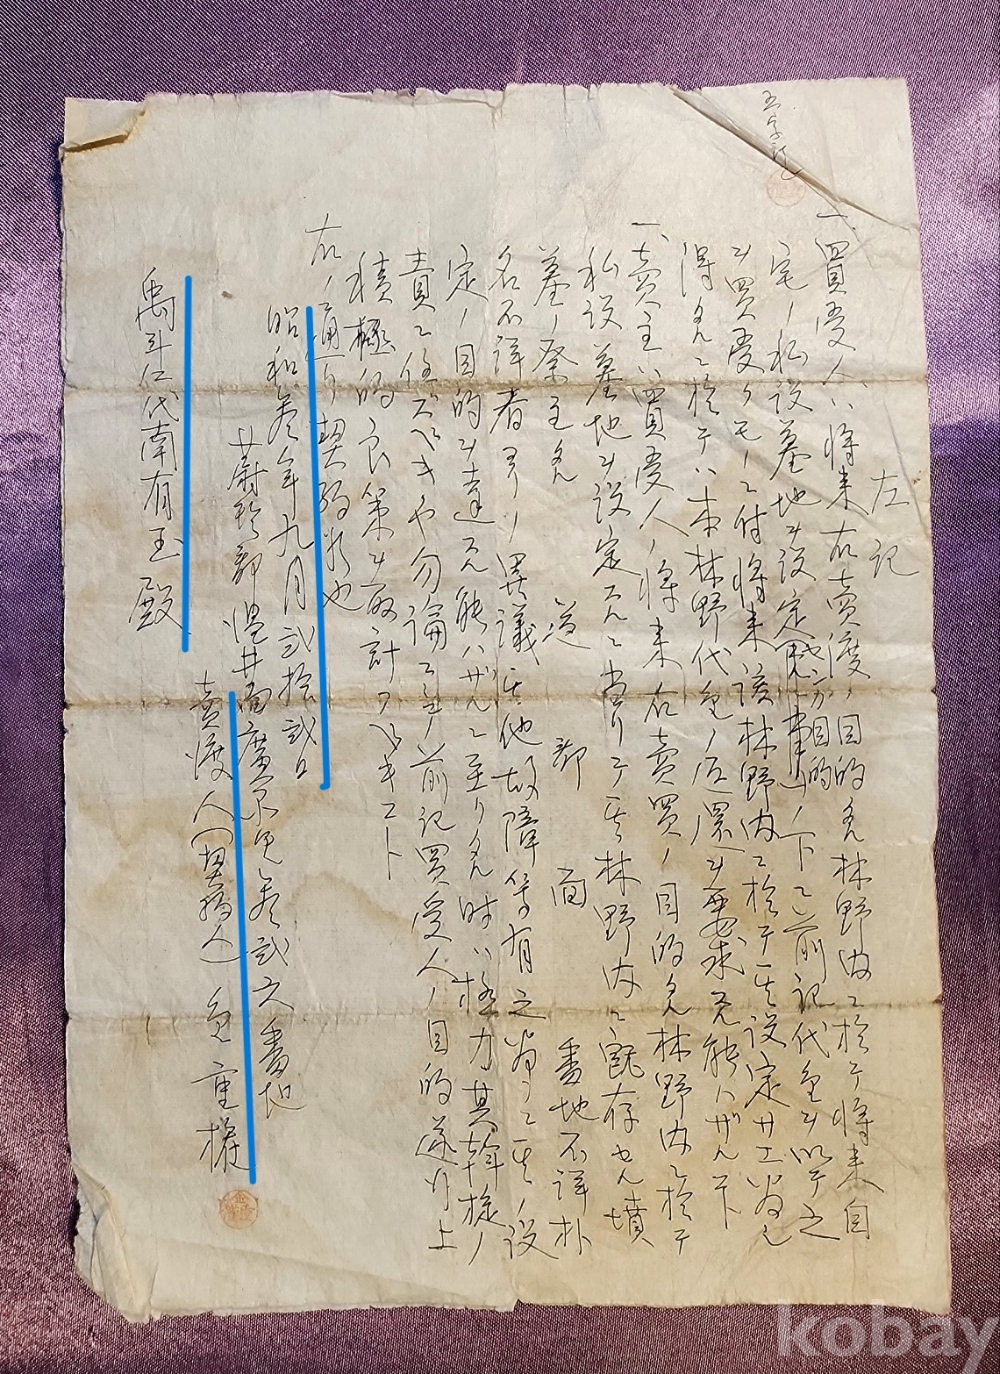 左記
一、買受人ハ将来右売渡ノ目的タル林野内ニ於テ将来自
宅ノ私設墓地ヲ設定 目的ノ下ニ前記代金ヲ以テ之
ヲ買受クモノニ付将来該林野内ニ於テ其設定サエ為シ
得タルニ於テハ本林野代金ノ返還ヲ要求スル能ハザル下
一、売主ハ買受人ノ将来右売買ノ目的タル林野内ニ於テ
私設墓地ヲ設定スルニ当リテ其林野内ニ既存セル墳
墓ノ祭主タル 道 郡 面 番地不詳朴
名不詳者ヨリ異議其他故障等有之為ニ其ノ設
定ノ目的ヲ達スル能ハザルニ至リタル時ハ極力其斡旋ノ
責ニ任ズベキヤ勿論ニ 前記買受人ノ目的遂行上
積極的良策ヲ取計フベキコト
右ノ通リ契約 也
昭和参年九月弐拾弐日
蔚珍郡温井面広 参弐六番地
売渡人 金重
禹斗仁代南有玉殿
kobay